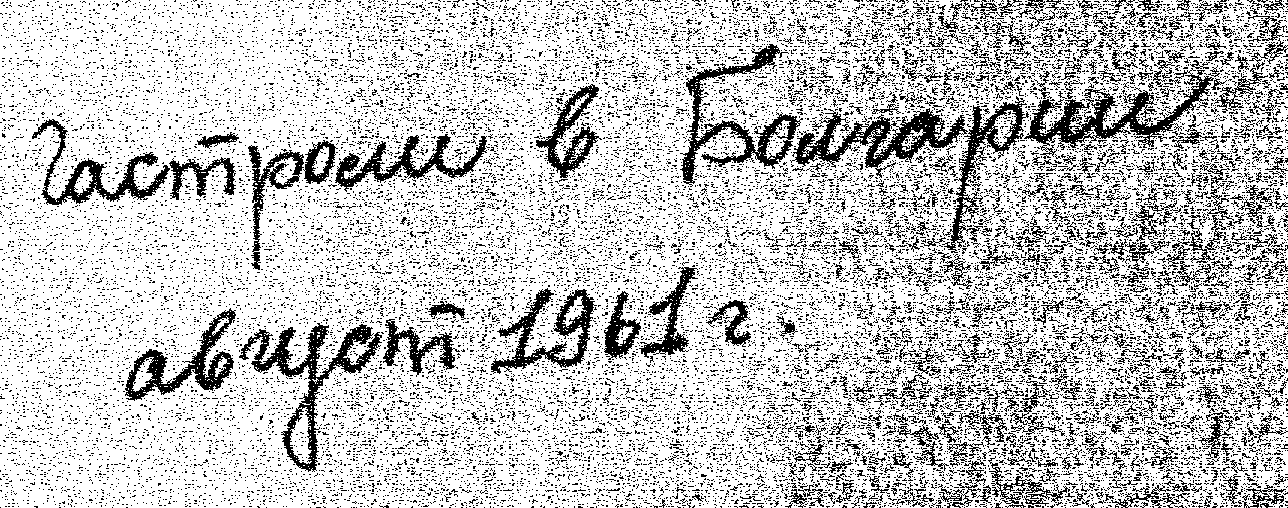 Гастроли в Болгарии
август 1961 г.